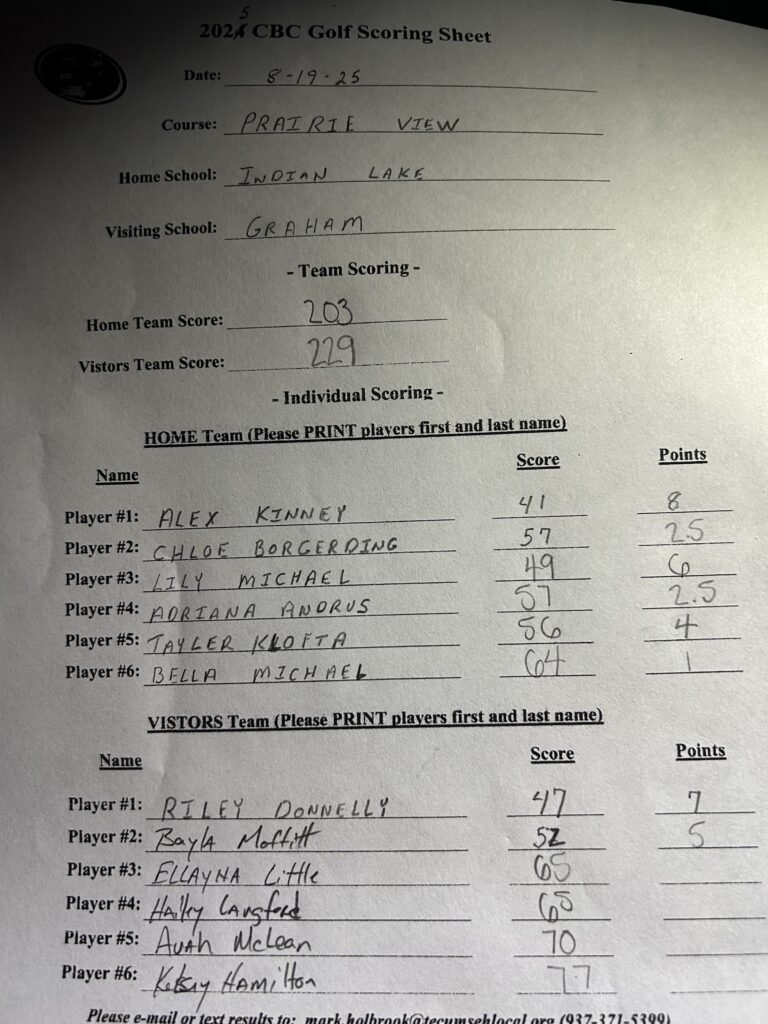 2025 CBC Golf Scoring Sheet
Date: 8-19-25
Course: PRAIRIE VIEW
Home School: INDIAN LAKE
Visiting School: GRAHAM
- Team Scoring -
Home Team Score: 203
Vistors Team Score: 229
- Individual Scoring -
HOME Team (Please PRINT players first and last name)
Name Score Points
Player #1: ALEX KINNEY 41 8
Player #2: CHLOE BORGERDING 57 2.5
Player #3: LILY MICHAEL 49 6
Player #4: ADRIANA ANDRUS 57 2.5
Player #5: TAYLER KLOFTA 56 4
Player #6: BELLA MICHAEL 64 1
VISTORS Team (Please PRINT players first and last name)
Name Score Points
Player #1: RILEY DONNELLY 47 7
Player #2: Bayla Moffitt 52 5
Player #3: ELLAYNA Little 65
Player #4: Hailey Langford 65
Player #5: Avah McLean 70
Player #6: Kelsey HAMILTON 77
Please e-mail or text results to: mark.holbrook@tecumsehlocal.org (937-371-5399)